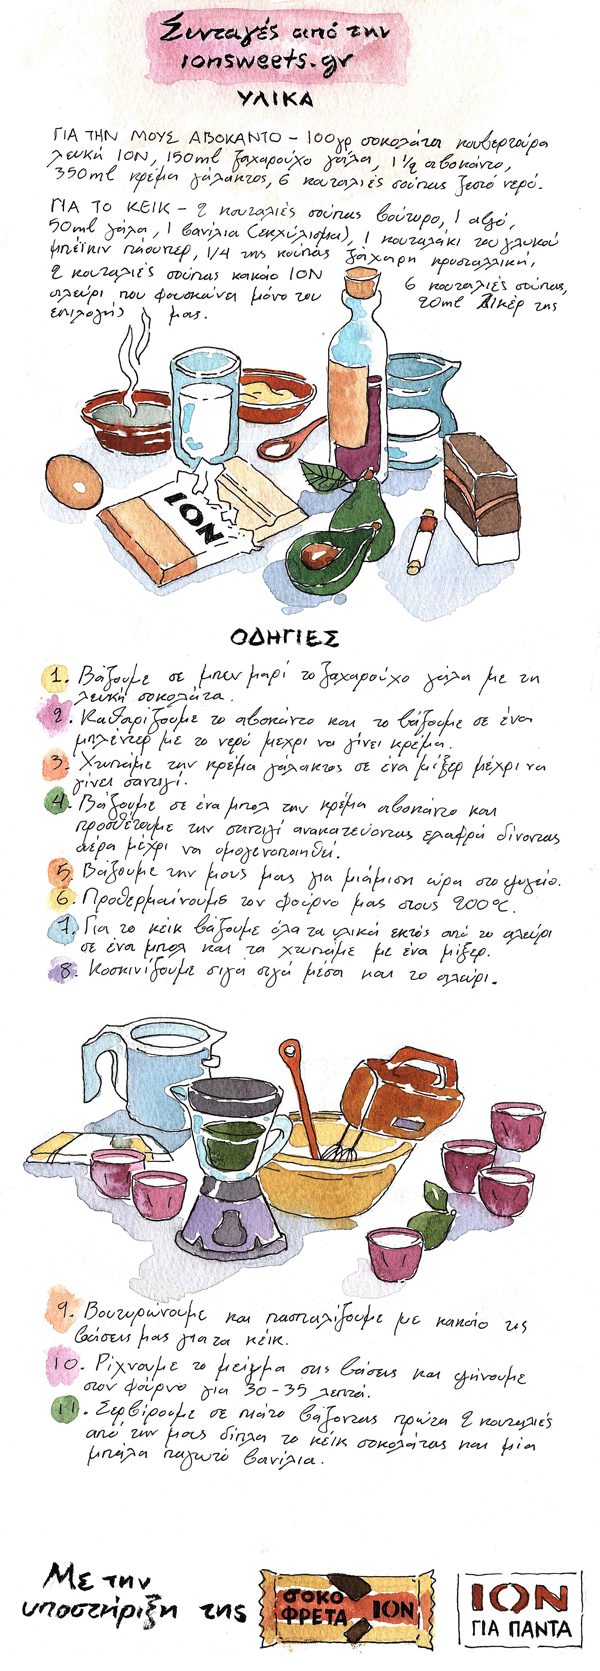 Συνταγές από την
ionsweets.gr
ΥΛΙΚΑ
ΓΙΑ ΤΗΝ ΜΟΥΣ ΑΒΟΚΑΝΤΟ - 100γρ σοκολάτα κουβερτούρα
λευκή ΙΟΝ, 150ml ζαχαρούχο γάλα, 1 ½ αβοκάντο,
350ml κρέμα γάλακτος, 6 κουταλιές σούπας ζεστό νερό.
ΓΙΑ ΤΟ ΚΕΙΚ - 2 κουταλιές σούπας βούτυρο, 1 αβγό,
50ml γάλα, 1 βανίλια (εκχύλισμα), 1 κουταλάκι του γλυκού
μπέικιν πάουντερ, 1/4 της κούπας ζάχαρη κρυσταλλική,
2 κουταλιές σούπας κακάο ΙΟΝ 6 κουταλιές σούπας,
αλεύρι που φουσκώνει μόνο του 20ml Λικέρ της
επιλογής μας.
ΙΟΝ
ΟΔΗΓΙΕΣ
1. Βάζουμε σε μπεν μαρί το ζαχαρούχο γάλα με τη
λευκή σοκολάτα.
2. Καθαρίζουμε το αβοκάντο και το βάζουμε σε ένα
μπλέντερ με το νερό μεχρι να γίνει κρέμα.
3. Χτυπάμε την κρέμα γάλακτος σε ένα μίξερ μέχρι να
γίνει σαντιγί.
4. Βάζουμε σε ένα μπολ την κρέμα αβοκάντο και
προσθέτουμε την σαντιγί ανακατεύοντας ελαφρά δίνοντας
αέρα μέχρι να ομογενοποιηθεί.
5. Βάζουμε την μους μας για μιάμιση ώρα στο ψυγείο.
6. Προθερμαίνουμε τον φούρνο μας στους 200°C.
7. Για το κέικ βάζουμε όλα τα υλικά εκτός από το αλεύρι
σε ένα μπολ και τα χτυπάμε με ένα μίξερ.
8. Κοσκινίζουμε σιγά σιγά μέσα και το αλεύρι.
9. Βουτυρώνουμε και πασπαλίζουμε με κακάο τις
βάσεις μας για τα κέικ.
10. Ρίχνουμε το μείγμα στις βάσεις και ψήνουμε
στον φούρνο για 30-35 λεπτά.
11. Σερβίρουμε σε πιάτο βάζοντας πρώτα 2 κουταλιές
από την μους δίπλα το κέικ σοκολάτας και μία
μπάλα παγωτό βανίλια.
Με την
υποστήριξη της
σοκο
ΦΡΕΤΑ ΙΟΝ
ΙΟΝ
ΓΙΑ ΠΑΝΤΑ